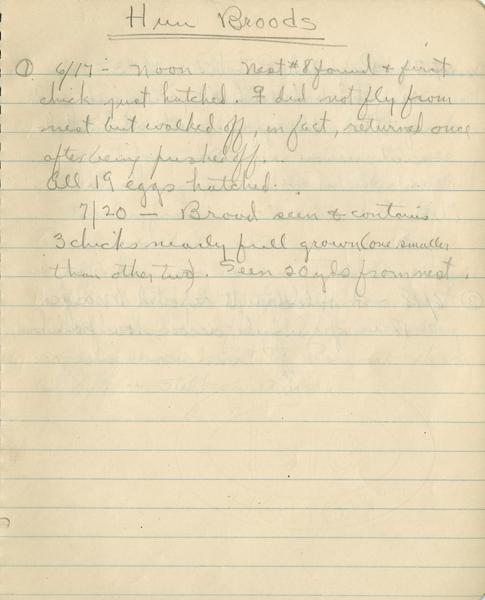 Hun Broods
① 6/17 - Noon Nest #8 found & first
chick just hatched. ♀ did not fly from
nest but walked off, in fact, returned once
after being pushed off.
All 19 eggs hatched.
7/20 - Brood seen & contains
3 chicks nearly full grown (one smaller
than other two). Seen 20 yds from nest.